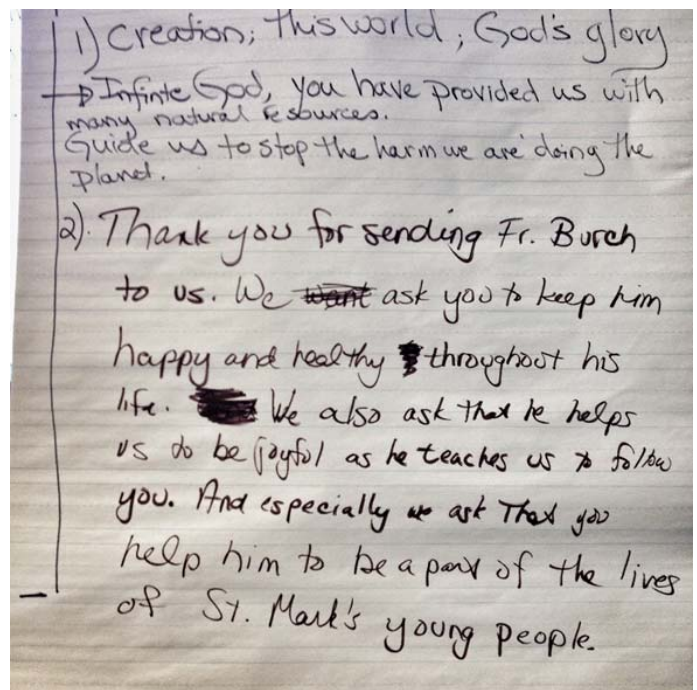 1) Creation; this world; God's glory
→ Infinte God, you have provided us with
many natural resources.
Guide us to stop the harm we are doing the
planet.
2). Thank you for sending Fr. Burch
to us. We want ask you to keep him
happy and healthy throughout his
life. We also ask that he helps
us to be joyful as he teaches us to follow
you. And especially we ask That you
help him to be a part of the lives
of St. Mark's young people.